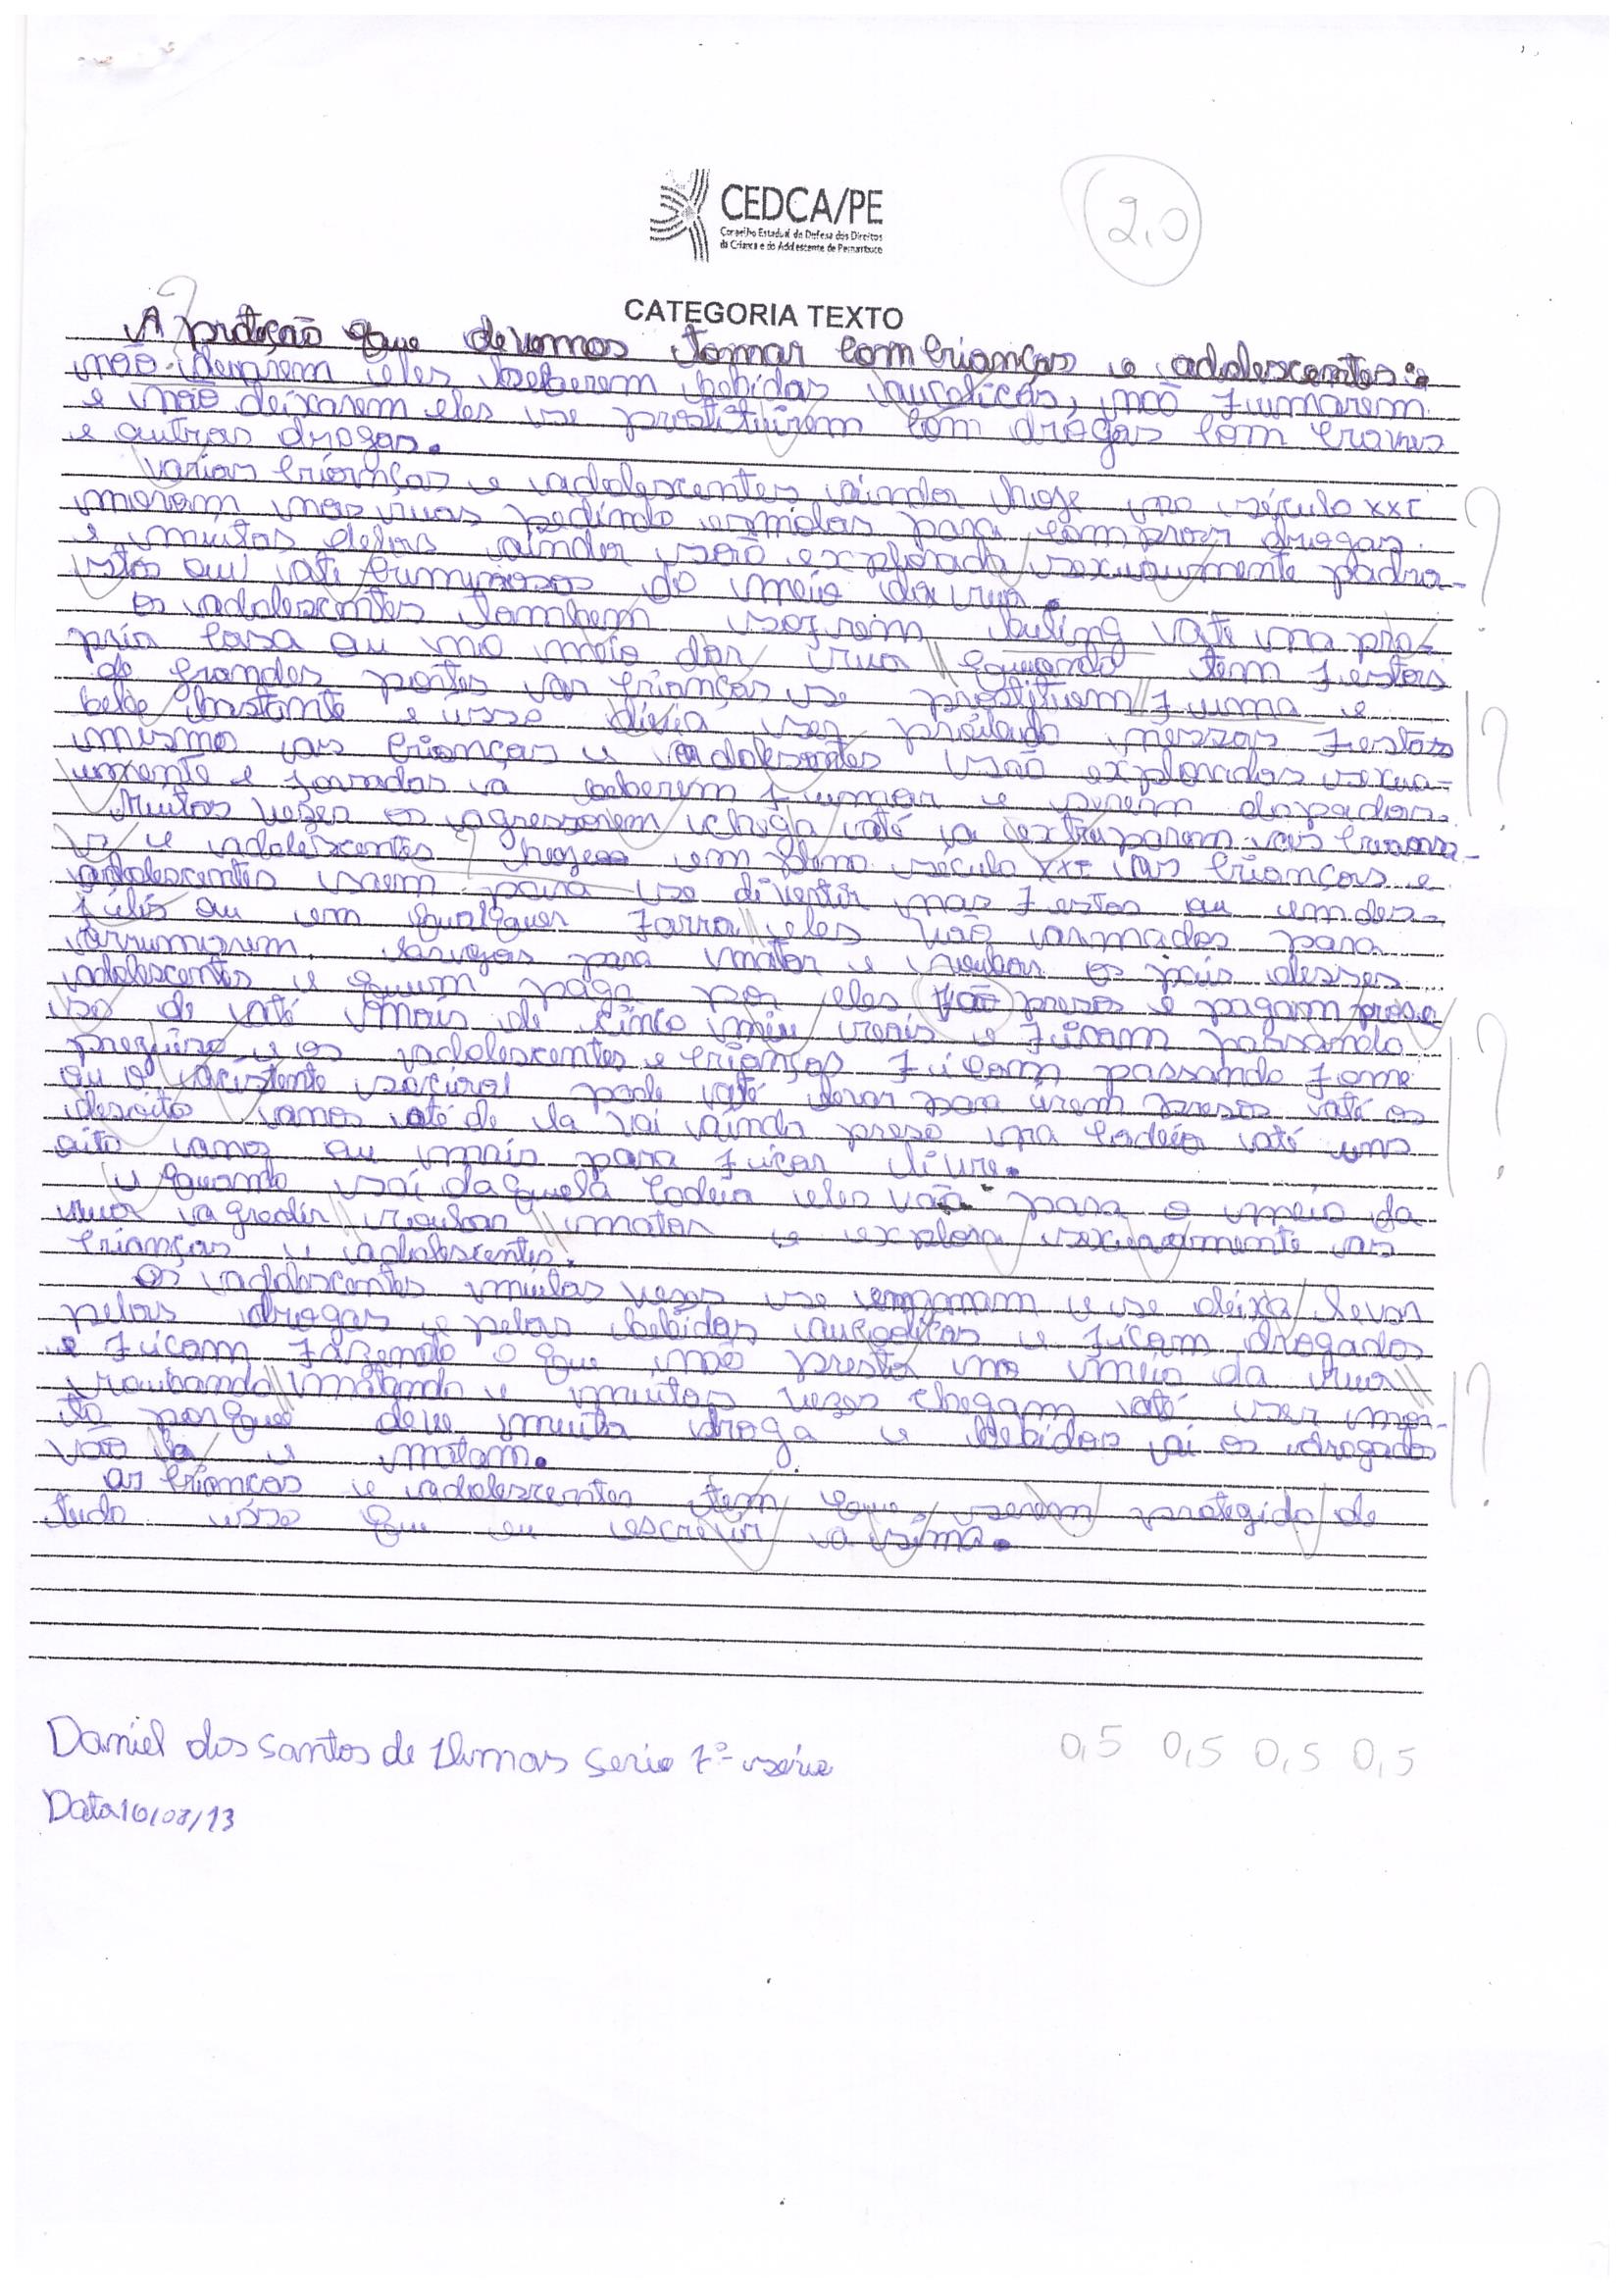 CEDCA/PE
Conselho Estadual de Defesa dos Direitos
da Criança e do Adolescente de Pernambuco
2,0
CATEGORIA TEXTO
?
A proteção que devemos tomar com crianças e adolescentes:
não deixarem eles beberem bebidas aucolicas, não fumarem
e não deixarem eles se prostituirem com drogas com cravos
e outras drogas.
Varias crianças e adolescentes ainda hoje no século XXI ?
moram nas ruas pedindo esmolas para comprar drogas
e muitas delas ainda são explorada sexuaumente padra-
stos ou até criminosos do meio da rua.
Os adolescentes tambem sofrem buling até na pro-
pria casa ou no meio da rua quando tem festas
de grandes portes as crianças se prostituem fuma e
bebe bastante e isso diria ser proibido nessas festas ?
mesmo as crianças e adolesentes são explorados sexua-
umente e a beberem fumar e
Muitas vezes os agressorem chega até a as
e adolescentes hoje em pleno século XXI as crianças e
adolescentes saem para se divertir nas festas ou em des-
file ou em qualquer farra eles vão armados para
arrumarem para matar e roubar os pais desses
adolescentes e quem paga por eles vão presos e pagam
de até mais de cinco miu reais e ficam passando ?
e os adolescentes e crianças ficam passando fome
ou o acistente social pode até levar para irem presos até os
desoito anos até de la vai ainda preso na cadeia até uns
oito anos ou mais para ficar livre.
e quando sai daquela cadeia eles vão para o meio da
rua agredir roubar matar e explora sexuaumente as
crianças e adolescentes.
Os adolescentes muitas vezes se enganam e se deixa levar
pelas drogas e pelas bebidas aucolicas e ficam drogados
e ficam fazendo o que não presta no meio da rua
roubando matando e muitas vezes chegam até ser mor- ?
to porque deve muita droga e bebidas ai os drogados
vão la e matam.
as crianças e adolescentes tem que serem protegido de
tudo isso que eu escrevir a sima.
Daniel dos Santos de serie 7ª série
0,5 0,5 0,5 0,5
Data 16/08/13